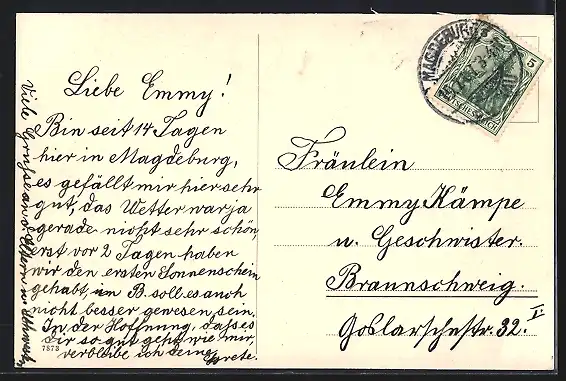 Liebe Emmy!
Bin seit 14 Tagen
hier in Magdeburg,
es gefällt mir hier sehr
gut, das Wetter war ja
gerade nicht sehr schön,
erst vor 2 Tagen haben
wir den ersten Sonnenschein
gehabt, im B. soll es auch
nicht besser gewesen sein.
In der Hoffnung, dass es
dir so gut geht wie mir,
verbleibe ich deine Grete.
7873
Viele Grüsse an
MAGDEBURG
5
DEUTSCHES REICH
Fräulein
Emmy Kämpe
u. Geschwister.
Braunschweig.
Goslarschestr. 32. II